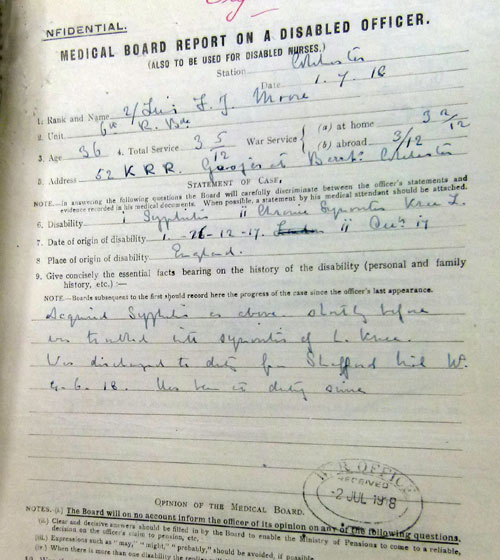 NFIDENTIAL.
MEDICAL BOARD REPORT ON A DISABLED OFFICER.
(ALSO TO BE USED FOR DISABLED NURSES.)
Station Colchester
Date 1.7.18
1. Rank and Name 2/Lieu F. J. Moore
2. Unit 6th R. Bde
3. Age 36 4. Total Service 3 5/12 War Service (a) at home 3 2/12
(b) abroad 3/12
5. Address 52 K R R. Colchester
STATEMENT OF CASE.
NOTE.—In answering the following questions the Board will carefully discriminate between the officer's statements and
evidence recorded in his medical documents. When possible, a statement by his medical attendant should be attached.
6. Disability i Syphilis ii Chronic Synovitis Knee L.
7. Date of origin of disability 1 - 26-12-17. ii Decr 17
8 Place of origin of disability England.
9. Give concisely the essential facts bearing on the history of the disability (personal and family
history, etc.) :—
NOTE.—Boards subsequent to the first should record here the progress of the case since the officer's last appearance.
Acquired Syphilis as above. shortly before
was troubled with synovitis of L. Knee.
Was discharged to duty from
4.6.18. Has been at duty since
WAR OFFICE
RECEIVED
-2 JUL 1918
OPINION OF THE MEDICAL BOARD.
NOTES. (i.) The Board will on no account inform the officer of its opinion on any of the following questions.
(ii.) Clear and decisive answers should be filled in by the Board to enable the Ministry of Pensions to come to a reliable,
decision on the officer's claim to pension, etc.
(iii.) Expressions such as "may," "might," "probably," should be avoided, if possible.
(iv.) When there is more than one disability the